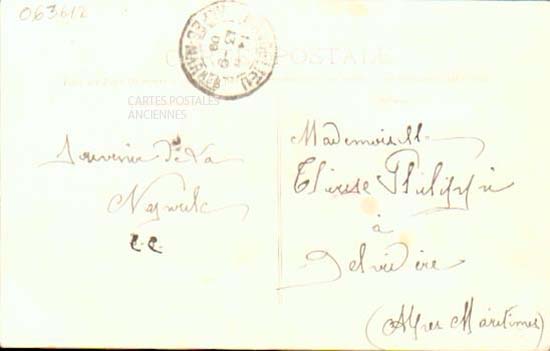 063612
CARTE POSTALE
CARTES POSTALES
ANCIENNES
Souvenir de La
C.C.
Mademoiselle
Thérèse Philippi
à
Belvédère
(Alpes Maritimes)